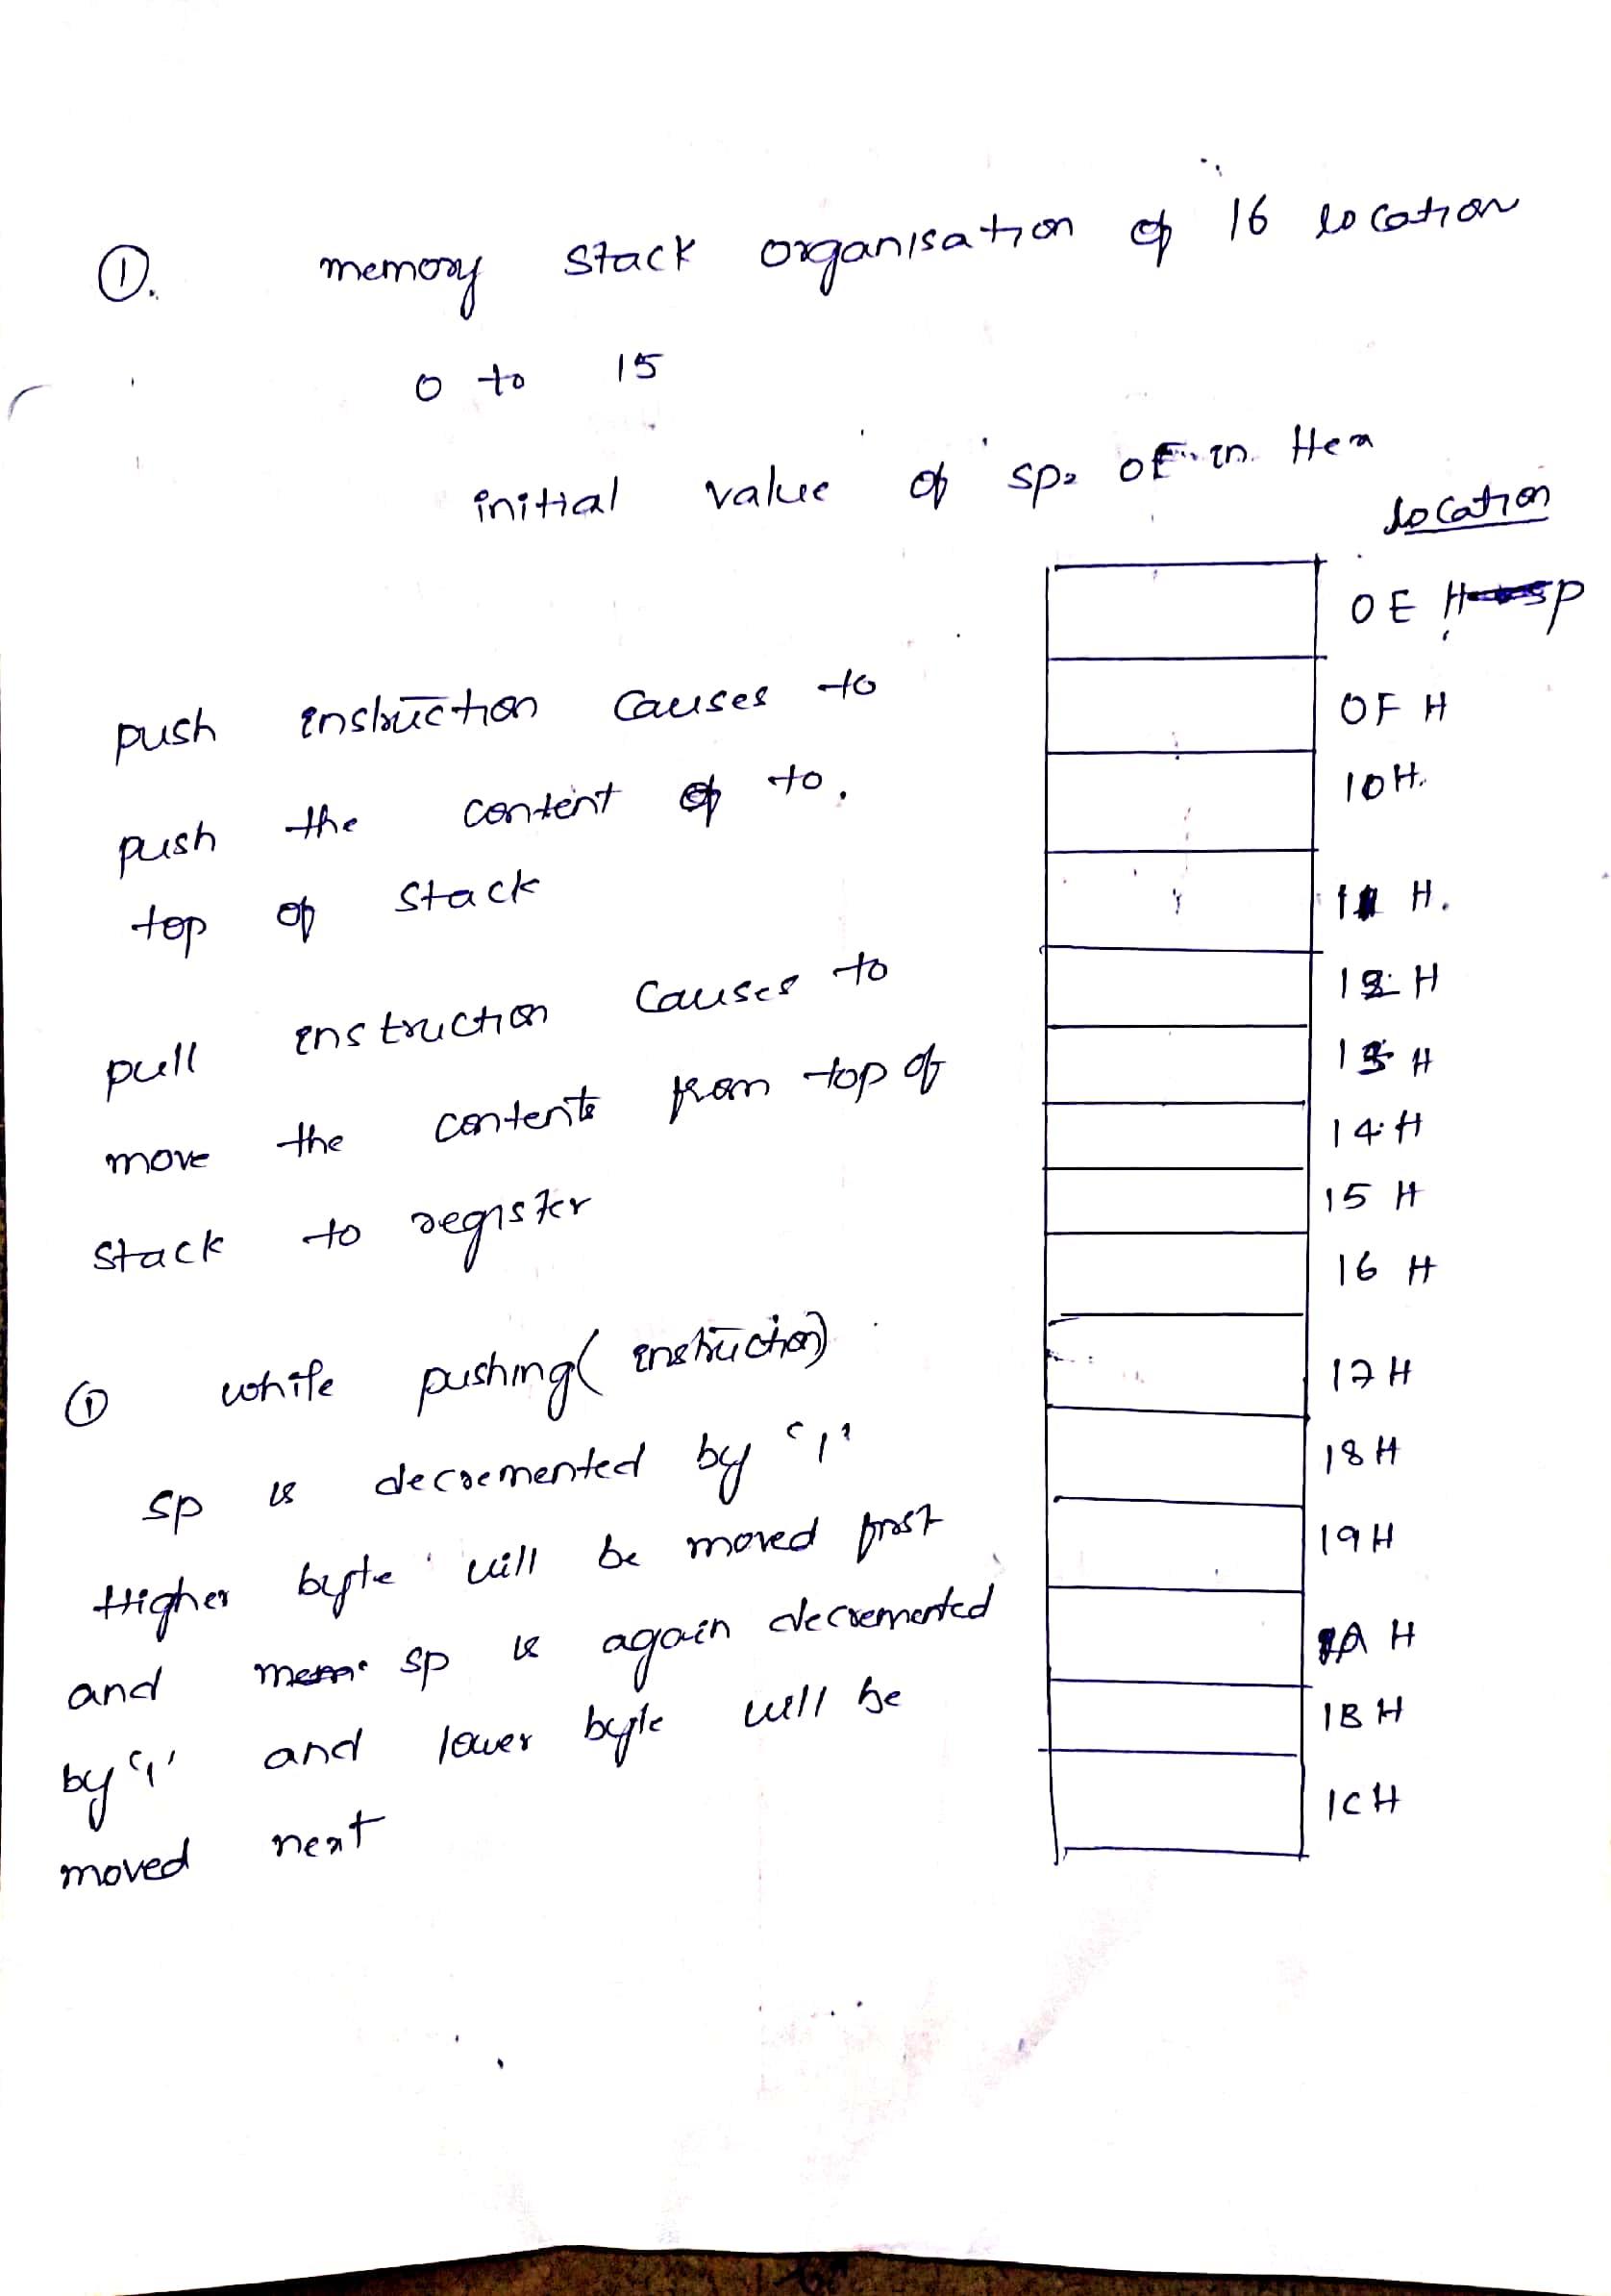 ①. memory stack organisation of 16 location
0 to 15
initial value of sp= OE in Hex
location
OE H sp
push instruction causes to
OF H
push the content of to.
10H.
top of stack
11 H.
pull instruction causes to
12 H
13 H
move the contents from top of
14 H
stack to register
15 H
16 H
① while pushing( instruction)
17H
sp is decremented by '1'
18H
Higher byte will be moved first
19H
and sp is again decremented
1A H
by '1' and lower byte will be
1B H
moved next
1CH